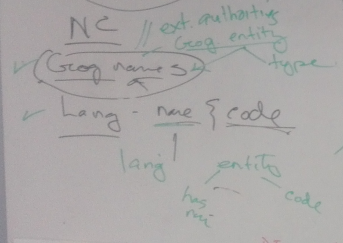 NC // ext. authorities
Geog entity
Geog names
type
Lang - name { code
lang
entity
has
code